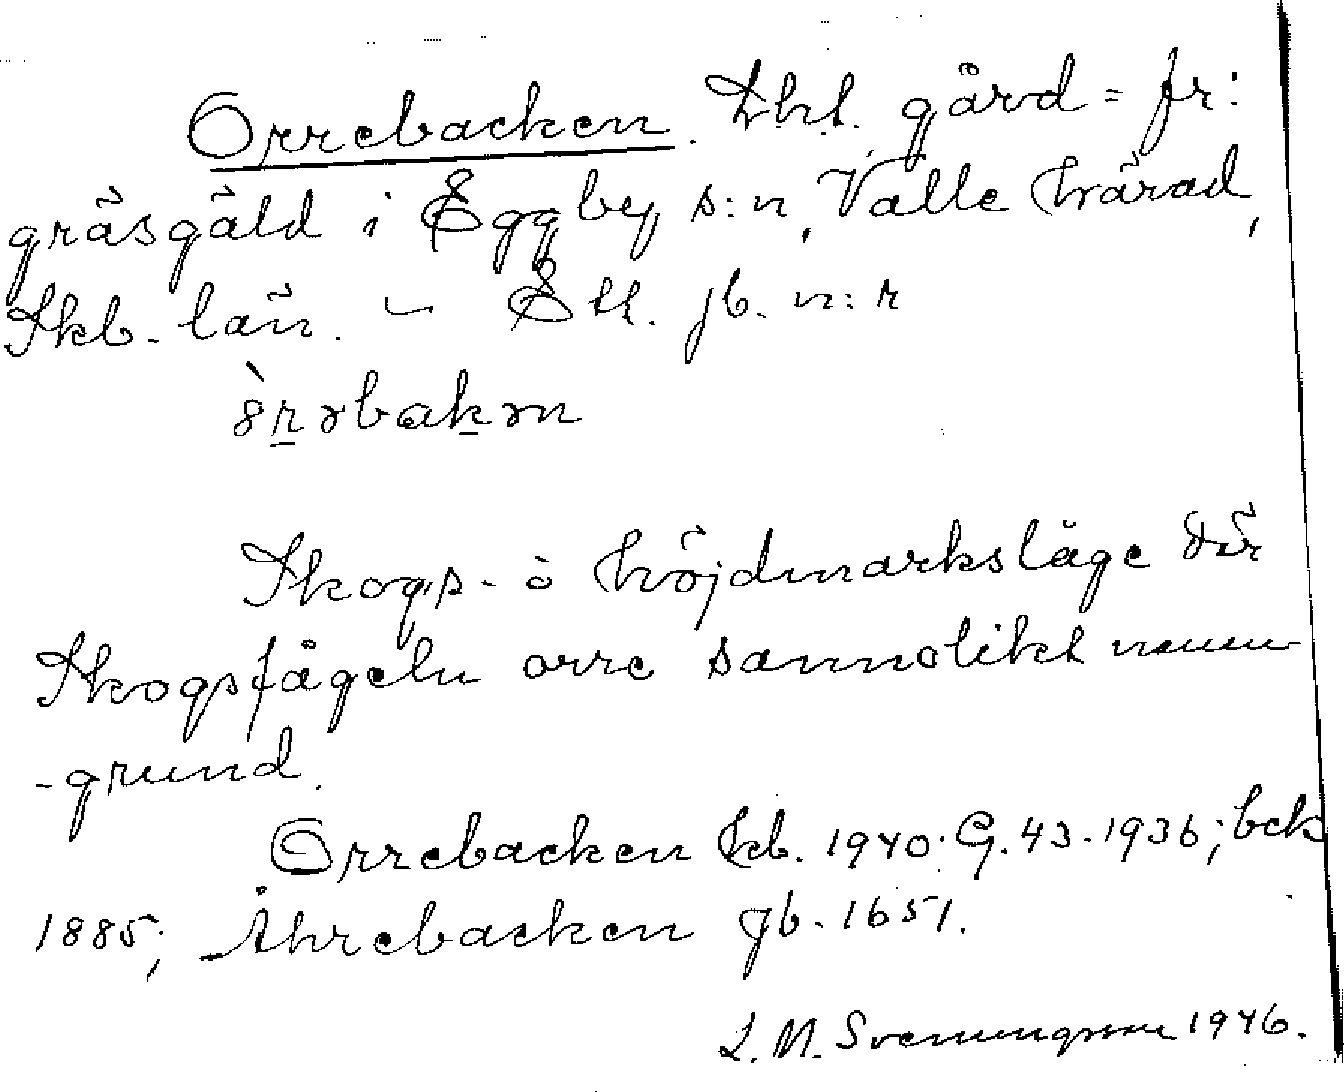 Orrebacken. Lht. gård = fr:
gräsgäld i Eggby s:n, Valle härad,
Skb. län. – Ett. jb. n:r
òrəbakən
Skogs- o höjdmarksläge där
Skogsfågeln orre sannolikt namn
-grund.
Orrebacken kb. 1940. G. 43. 1936; bek
1885; Åhrebacken jb. 1651.
L. M. Svenungsson 1946.